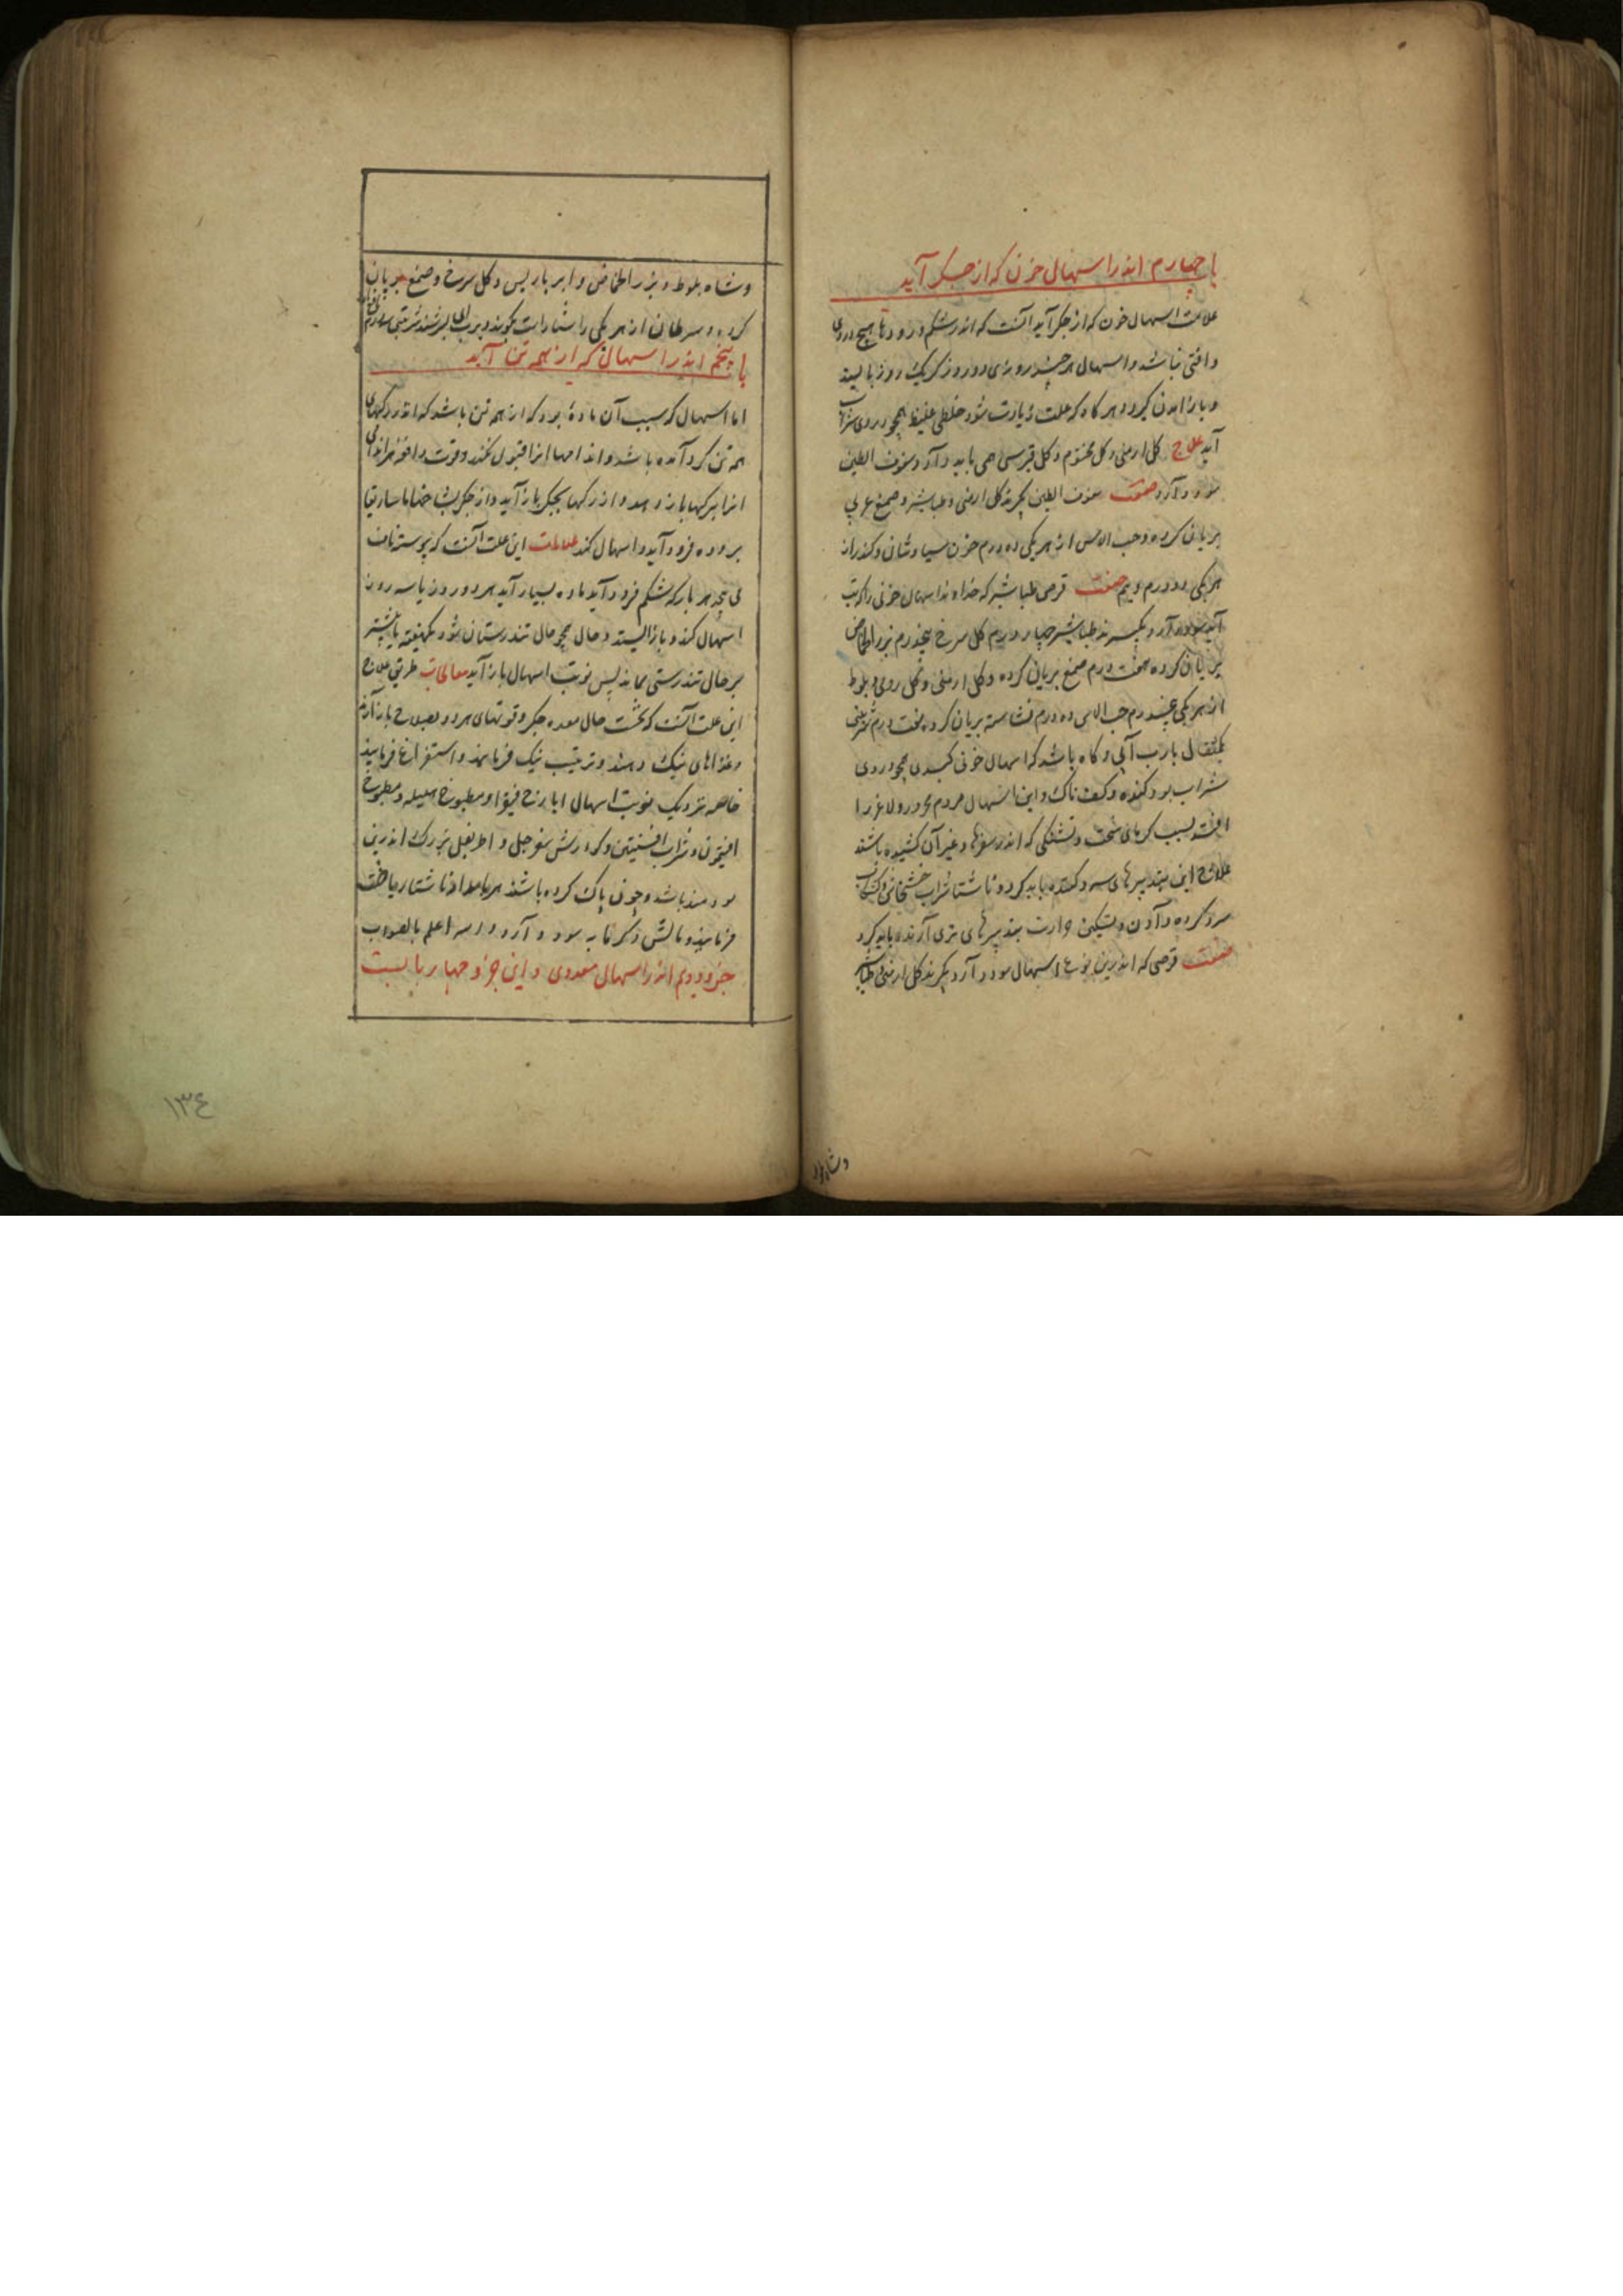 با چهارم اندر اسهال خون که از جگر آید
علامت اسهال خون که از جگر آید آنست که اندر شکم و رودها هیچ دردی
و آفتی نباشد و اسهال هر چند روزی دو روز کم یک روز باایستد
و باز آمدن گیرد و هر گاه که علت زیادت شود خلطی غلیظ همچو دردی شراب
آید علاج گل ارمنی و گل مختوم و گل قبرسی همی باید داد و سفوف الطین
سود دارد صفت سفوف الطین بگیرند گل ارمنی و طباشیر و صمغ عربی
بریان کرده و حب الاس از هر یکی ده درم خون سیاوشان و کندر از
هر یکی دو درم و نیم صفت قرص طباشیر که خداوند اسهال خونی را که تب
آید سود دارد بگیرند طباشیر چهار درم گل سرخ پنج درم بزر الحماض
بریان کرده هفت درم صمغ بریان کرده و گل ارمنی و گل رومی و بلوط
از هر یکی پنج درم حب الاس ده درم نشاسته بریان کرده هفت درم شربتی
یکمثقال با رب آبی و گاه باشد که اسهال خونی کبدی همچو دردی
شراب بود گنده و کفناک و این اسهال مردم محرور و لاغر را
افتد بسبب گرمای سخت و تشنگی که اندر سفرها و غیر آن کشیده باشند
علاج این بتدبیرهای سرد کننده باید کرد و ناشتا شراب خشخاش و کشکاب
سرد کرده دادن و تسکین حرارت بتدبیرهای تری آرنده باید کرد
صفت قرصی که اندرین نوع اسهال سود دارد بگیرند گل ارمنی طباشیر
وشاه بلوط
وشاه بلوط و بزر الحماض و امبرباریس و گل سرخ و صمغ بریان
کرده و سرطان از هر یکی راستا راست بکوبند و برب آبی بسرشند شربتی
با پنجم اندر اسهال که از همه تن آید
اما اسهال که سبب آن ماده بود که از همه تن باشد که اندر رگهای
همه تن گرد آمده باشد و اندامها آنرا قبول نکند و قوت دافعه
آنرا برگها باز دهد و از رگها بجگر باز آید و از جگر بماساریقا
بروده فرود آید و اسهال کند علامات این علت آنست که پیوسته ناف
می پیچد هر بار که شکم فرود آید ماده بسیار آید هر دو روز یا سه روز
اسهال کند و باز ایستد و حال همچو حال تندرستان شود یکهفته یا بیشتر
بر حال تندرستی بماند پس نوبت اسهال باز آید معالجات طریق علاج
این علت آنست که نخست حال معده و جگر و قوتهای هر دو بصلاح باز آرند
و غذاهای نیک دهند و ترتیب نیک فرمایند و استفراغ فرمایند
خاصه نزدیک نوبت اسهال ایارج فیقرا و مطبوخ هلیله و مطبوخ
افیتمون و شراب افسنتین و گوارش سفرجل و اطریفل بزرگ اندرین
سودمند باشد و چون پاک کرده باشند هر بامداد ناشتا ریاضت
فرمایند و مالش و گرمابه سود دارد والله اعلم بالصواب
جزو دوم اندر اسهال معدوی و این جزو چهار بابست
١٣٤